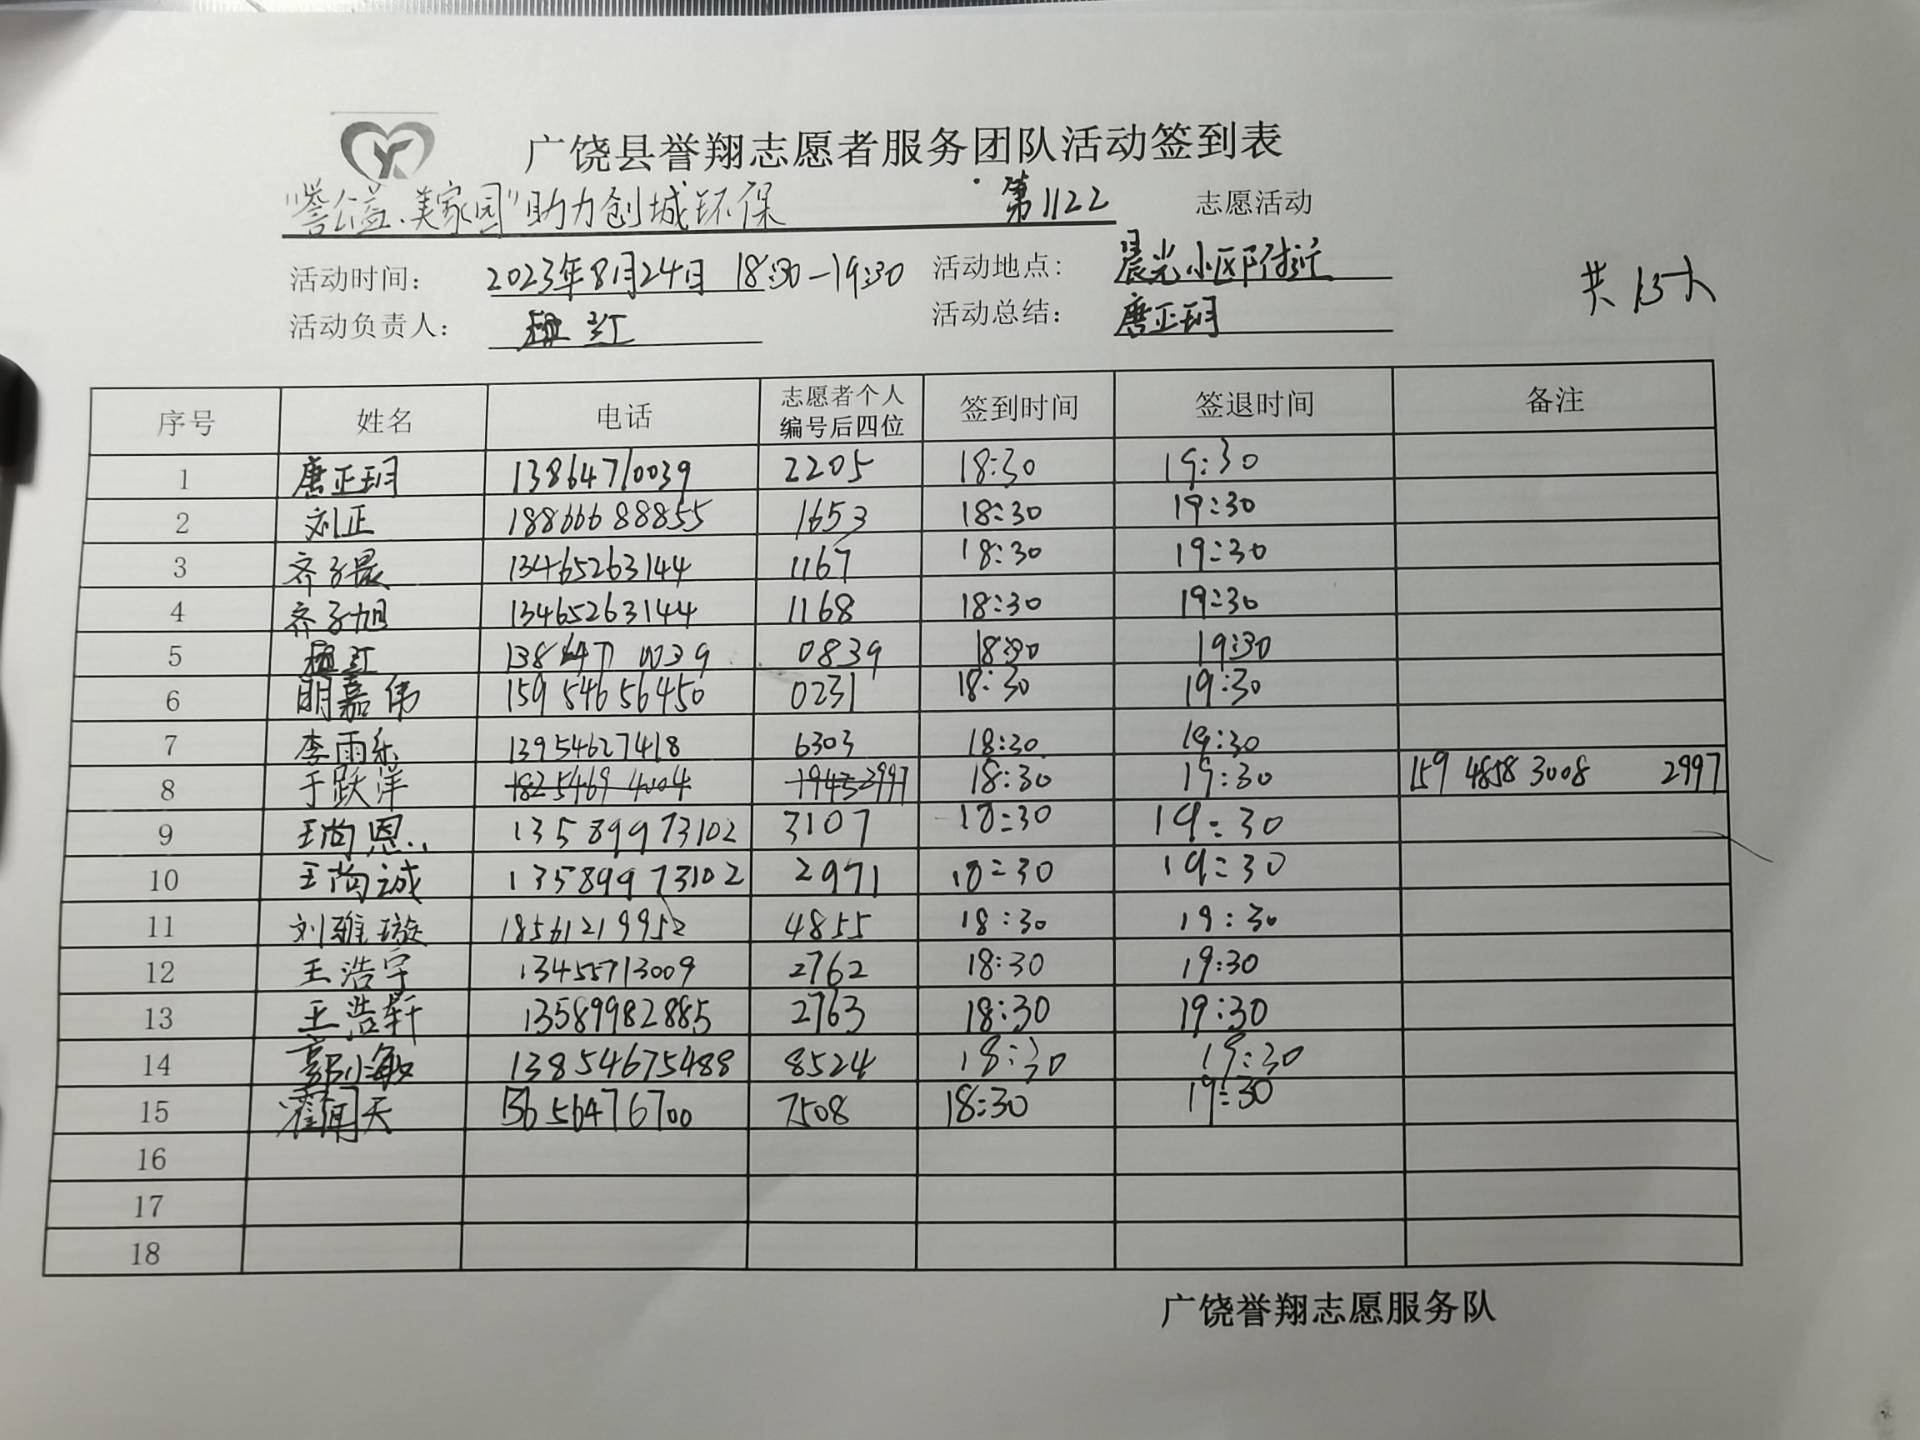 广饶县誉翔志愿者服务团队活动签到表
"誉公益、美家园"助力创城环保 第1122 志愿活动
活动时间： 2023年8月24日 18:30-19:30 活动地点： 晨光小区附近
共15人
活动负责人： 红 活动总结： 唐正玥
序号 姓名 电话 志愿者个人编号后四位 签到时间 签退时间 备注
1 唐正玥 13864710039 2205 18:30 19:30
2 刘正 18866688855 1653 18:30 19:30
3 齐子晨 13465263144 1167 18:30 19:30
4 齐子旭 13465263144 1168 18:30 19:30
5 红 13864710039 0839 18:30 19:30
6 明嘉伟 15954656450 0231 18:30 19:30
7 李雨乐 13954627418 6303 18:30 19:30
8 于跃洋 18:30 19:30 159 4858 3008 2997
9 王尚恩 13589973102 3107 18:30 19:30
10 王尚诚 13589973102 2971 18:30 19:30
11 刘雅璇 18561219952 4855 18:30 19:30
12 王浩宇 13455713009 2762 18:30 19:30
13 王浩轩 13589982885 2763 18:30 19:30
14 郭小敏 13854675488 8524 18:30 19:30
15 闻天 13656476700 7508 18:30 19:30
16
17
18
广饶誉翔志愿服务队